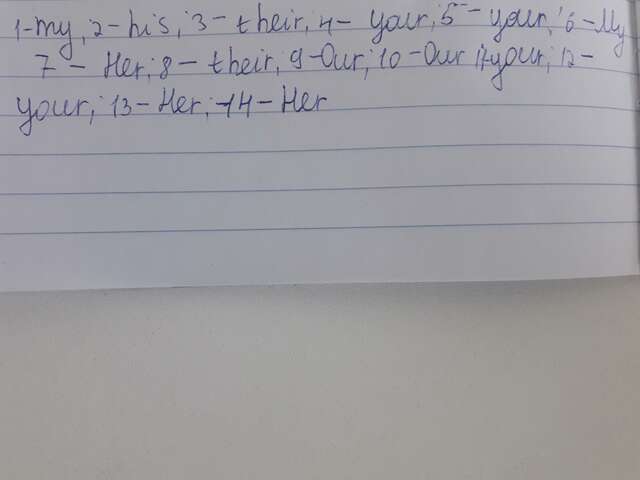 1-my, 2-his, 3-their, 4-your, 5-your, 6-My
7-Her, 8-their, 9-Our, 10-Our 11-your, 12-
your, 13-Her, 14-Her